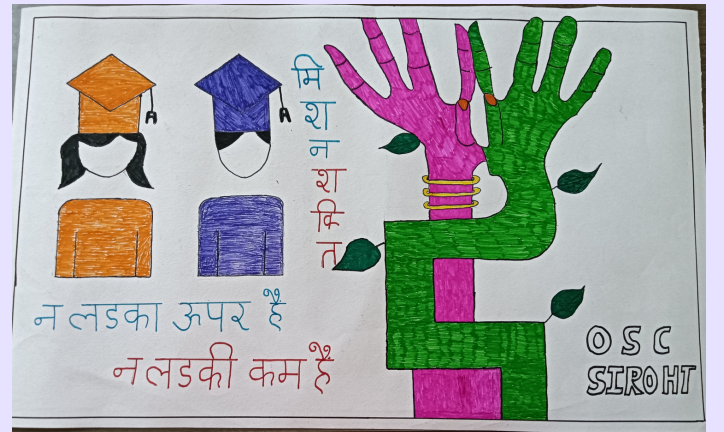 मिशन शक्ति
न लडका ऊपर है
न लडकी कम है
OSC
SIROHI